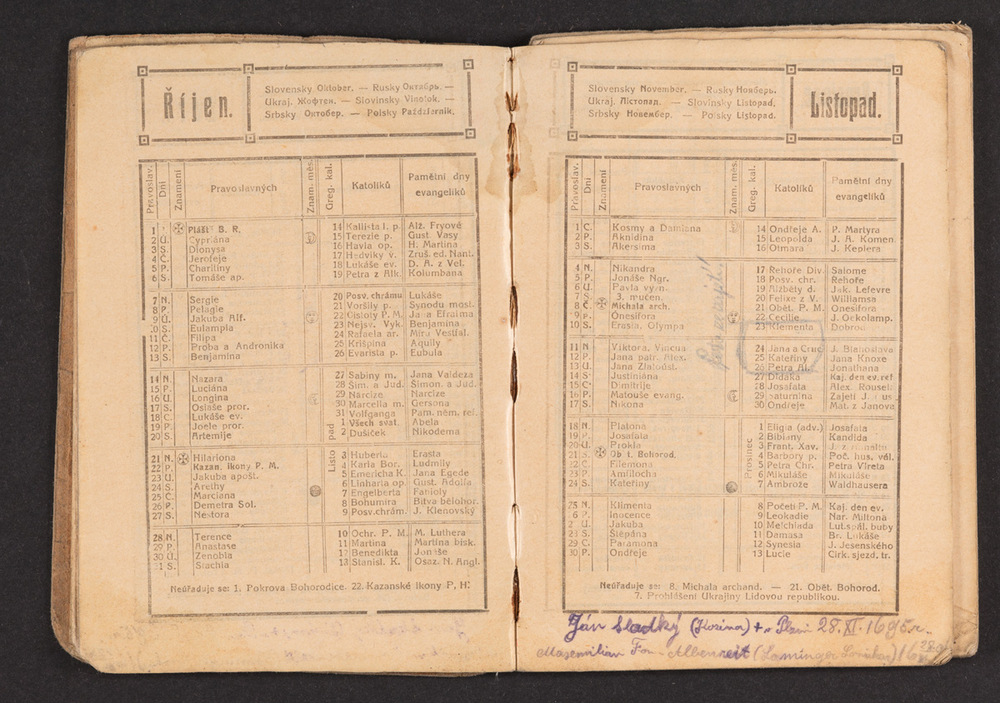 Říjen.
Slovensky Oktober. — Rusky Октябрь. —
Ukraj. Жофтен. — Slovinsky Vinotok. —
Srbsky Октобер. — Polsky Październik.
Pravoslav. Dni Znamení Pravoslavných Znam. měs. Greg. kal. Katolíků Pamětní dny evangelíků
1 Plášť B. R. 14 Kallista I. p. Alž. Fryové
2 Ú. Cypriána 15 Terezie p. Gust Vasy
3 S. Dionysa 16 Havla op. H. Martina
4 Č. Jeroteje 17 Hedviky v. Zruš. ed. Nant.
5 P. Charitiny 18 Lukáše ev. D. A. z Vel.
6 S. Tomáše ap. 19 Petra z Alk. Kolumbana
7 N. Sergie 20 Posv. chrámu Lukáše
8 P. Pelagie 21 Voršily p. Synodu most.
9 Ú. Jakuba Alf. 22 Cistoty P. M. Jana Efraima
10 S. Eulampia 23 Nejsv. Vyk. Benjamina
11 Č. Filipa 24 Rafaela ar. Míru Vestfal.
12 P. Proba a Andronika 25 Krišpína Aquily
13 S. Benjamina 26 Evarista p. Eubula
14 N. Nazara 27 Sabiny m. Jana Valdeza
15 P. Luciána 28 Šim. a Jud. Šimon. a Jud.
16 Ú. Longina 29 Narcize Narcize
17 S. Osiaše pror. 30 Marcella m. Gersona
18 Č. Lukáše ev. 31 Volfganga Pam. něm. ref.
19 P. Joele pror. Listopad 1 Všech svat. Abela
20 S. Artemije 2 Dušiček Nikodema
21 N. Hilariona 3 Huberta Erasta
22 P. Kazan. ikony P. M. 4 Karla Bor. Ludmily
23 Ú. Jakuba apošt. 5 Emericha K. Jana Egede
24 S. Arethy 6 Linharta op. Gust. Adolfa
25 Č. Marciana 7 Engelberta Fabioly
26 P. Demetra Sol. 8 Bohumíra Bitva bělohor.
27 S. Nestora 9 Posv. chrám. J. Klenovský
28 N. Terence 10 Ochr. P. M. M. Luthera
29 P. Anastase 11 Martina Martina bisk.
30 Ú. Zenobia 12 Benedikta Jonáše
31 S. Stachia 13 Stanisl. K. Osaz. N. Angl.
Neúřaduje se: 1. Pokrova Bohorodice. 22. Kazanské ikony P. M.
Listopad.
Slovensky November. — Rusky Ноябрь.
Ukraj. Лістопад. — Slovinsky Listopad.
Srbsky Новембер. — Polsky Listopad.
Pravoslav. Dni Znamení Pravoslavných Znam. měs. Greg. kal. Katolíků Pamětní dny evangelíků
1 Č. Kosmy a Damiana 14 Ondřeje A. P. Martyra
2 P. Akindina 15 Leopolda J. A. Komen.
3 S. Akersima 16 Otmara J. Keplera
4 N. Nikandra 17 Řehoře Div. Salome
5 P. Jonáše Ngr. 18 Posv. chr. Řehoře
6 Ú. Pavla vyzn. 19 Alžběty d. Jak. Lefevre
7 S. 3. mučen. 20 Felixe z V. Williamsa
8 Č. Michala arch. 21 Obět. P. M. Onesifora
9 P. Onesifora 22 Cecilie J. Oekolamp.
10 S. Erasta, Olympa 23 Klementa Dobrou
11 N. Viktora, Vincua 24 Jana a Cruc J. Blahoslava
12 P. Jana patr. Alex. 25 Kateřiny Jana Knoxe
13 Ú. Jana Zlatoúst. 26 Petra Al. Jonathana
14 S. Justiniána 27 Didaka Kaj. den ev. ref
15 Č. Dimitrije 28 Josafata Alex. Roussel
16 P. Matouše evang. 29 Saturnina Zajetí J. Husa
17 S. Nikona 30 Ondřeje Mat. z Janova
18 N. Platona Prosinec 1 Eligia (adv.) Josafata
19 P. Josafata 2 Bibiany Kandida
20 Ú. Prokla 3 Frant. Xav.
21 S. Obět. Bohorod. 4 Barbory p. Poč. hus. vál.
22 Č. Filemona 5 Petra Chr. Petra Vireta
23 P. Amfilocha 6 Mikuláše Mikuláše
24 S. Kateřiny 7 Ambrože Waldhausera
25 N. Klimenta 8 Početí P. M. Kaj. den ev.
26 P. Inocence 9 Leokadie Nar. Miltona
27 Ú. Jakuba 10 Melchiada Lut. spál. buly
28 S. Štěpána 11 Damasa Br. Lukáše
29 Č. Paramona 12 Synesia J. Jesenského
30 P. Ondřeje 13 Lucie Cirk. sjezd. tr.
Neúřaduje se: 8. Michala archand. — 21. Obět. Bohorod.
7. Prohlášení Ukrajiny Lidovou republikou.
Ján Sladký (Kozina) + v Plzni 28. XI. 1695 r.
Maxmilian Albenreit (Laminger